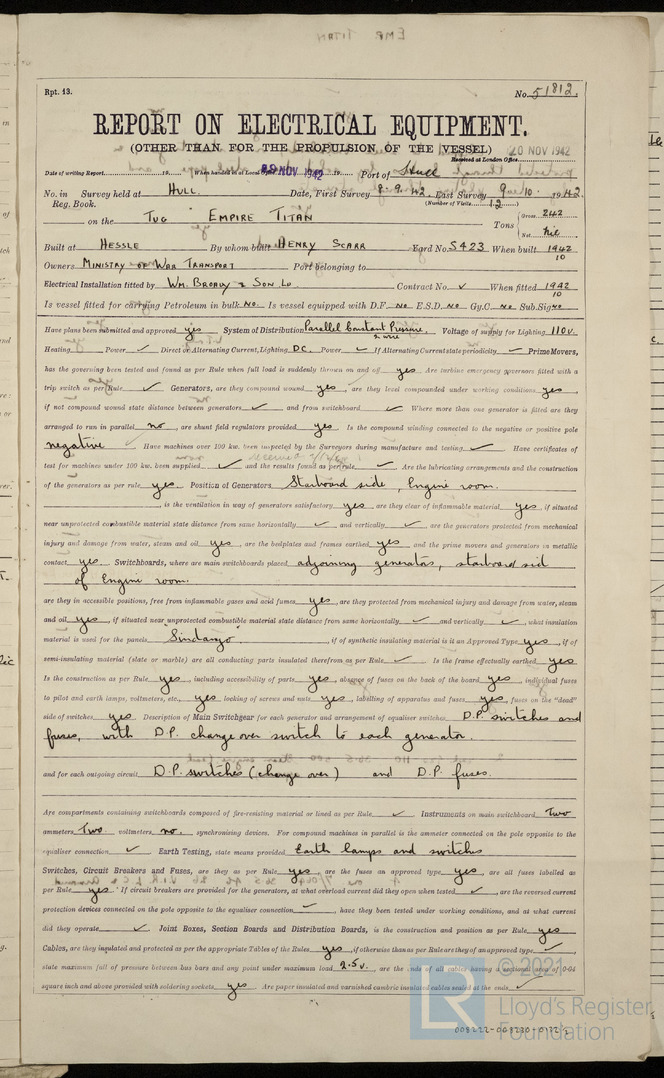 Rpt. 13.
No. 51812.
REPORT ON ELECTRICAL EQUIPMENT.
(OTHER THAN FOR THE PROPULSION OF THE VESSEL)
20 NOV 1942
Received at London Office
Date of writing Report 19 When handed in at Local Office NOV 1942 19 Port of Hull
No. in Survey held at HULL. Date, First Survey 8-9-42 Last Survey 9 10 1942
Reg. Book. (Number of Visits 12)
on the TUG EMPIRE TITAN Tons { Gross 242 Net Nil
Built at HESSLE By whom built HENRY SCARR Yard No. S423 When built 1942 10
Owners MINISTRY OF WAR TRANSPORT Port belonging to
Electrical Installation fitted by WM. BROADY & SON LD Contract No. ✓ When fitted 1942 10
Is vessel fitted for carrying Petroleum in bulk No. Is vessel equipped with D.F. No E.S.D. No Gy.C. No Sub.Sig. No
Have plans been submitted and approved yes System of Distribution Parallel Constant Pressure. 2 wire Voltage of supply for Lighting 110v.
Heating Power ✓ Direct or Alternating Current, Lighting D.C. Power ✓ If Alternating Current state periodicity ✓ Prime Movers,
has the governing been tested and found as per Rule when full load is suddenly thrown on and off yes Are turbine emergency governors fitted with a
trip switch as per Rule ✓ Generators, are they compound wound yes, are they level compounded under working conditions yes,
if not compound wound state distance between generators ✓ and from switchboard ✓ Where more than one generator is fitted are they
arranged to run in parallel no, are shunt field regulators provided yes Is the compound winding connected to the negative or positive pole
negative Have machines over 100 kw. been inspected by the Surveyors during manufacture and testing ✓ Have certificates of
test for machines under 100 kw. been supplied ✓ and the results found as per rule ✓ Are the lubricating arrangements and the construction
of the generators as per rule yes. Position of Generators Starboard side, Engine room.
, is the ventilation in way of generators satisfactory yes, are they clear of inflammable material yes, if situated
near unprotected combustible material state distance from same horizontally ✓ and vertically ✓, are the generators protected from mechanical
injury and damage from water, steam and oil yes, are the bedplates and frames earthed yes and the prime movers and generators in metallic
contact yes. Switchboards, where are main switchboards placed adjoining generators, starboard side
of Engine room.
are they in accessible positions, free from inflammable gases and acid fumes yes, are they protected from mechanical injury and damage from water, steam
and oil yes, if situated near unprotected combustible material state distance from same horizontally ✓ and vertically ✓, what insulation
material is used for the panels Sindanyo, if of synthetic insulating material is it an Approved Type yes, if of
semi-insulating material (slate or marble) are all conducting parts insulated therefrom as per Rule ✓ Is the frame effectually earthed yes
Is the construction as per Rule yes, including accessibility of parts yes, absence of fuses on the back of the board yes, individual fuses
to pilot and earth lamps, voltmeters, etc., yes locking of screws and nuts yes, labelling of apparatus and fuses yes, fuses on the "dead"
side of switches yes Description of Main Switchgear for each generator and arrangement of equaliser switches D.P. switches and
fuses, with D.P. change over switch to each generator.
and for each outgoing circuit D.P. switches (change over) and D.P. fuses.
Are compartments containing switchboards composed of fire-resisting material or lined as per Rule ✓ Instruments on main switchboard Two
ammeters Two voltmeters no. synchronising devices. For compound machines in parallel is the ammeter connected on the pole opposite to the
equaliser connection ✓ Earth Testing, state means provided Earth lamps and switches
Switches, Circuit Breakers and Fuses, are they as per Rule yes, are the fuses an approved type yes, are all fuses labelled as
per Rule yes. If circuit breakers are provided for the generators, at what overload current did they open when tested ✓, are the reversed current
protection devices connected on the pole opposite to the equaliser connection ✓, have they been tested under working conditions, and at what current
did they operate ✓ Joint Boxes, Section Boards and Distribution Boards, is the construction and position as per Rule yes
Cables, are they insulated and protected as per the appropriate Tables of the Rules yes, if otherwise than as per Rule are they of an approved type ✓,
state maximum fall of pressure between bus bars and any point under maximum load 2.5v., are the ends of all cables having a sectional area of 0·04
square inch and above provided with soldering sockets yes Are paper insulated and varnished cambric insulated cables sealed at the ends ✓
© 2021
Lloyd's Register
Foundation
LR
008222-008230-0172